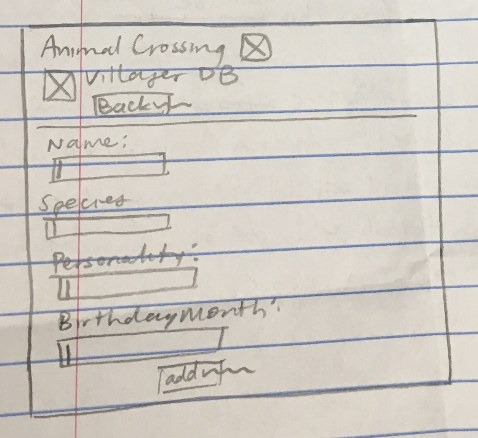 Animal Crossing
Villager DB
Back
Name:
Species
Personality:
Birthday Month:
add